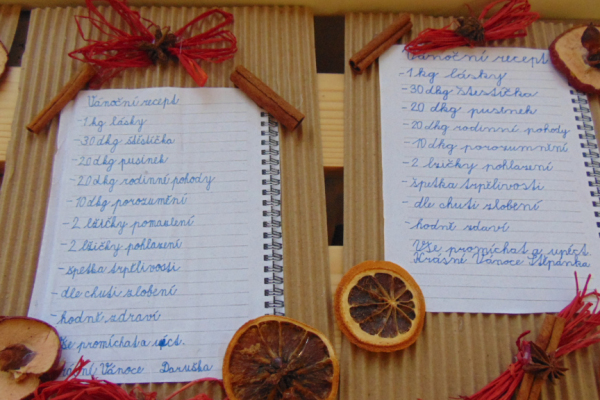 Vánoční recept
- 1 kg lásky
- 30 dkg štístička
- 20 dkg pusinek
- 20 dkg rodinní pohody
- 10 dkg porozumění
- 2 lžičky pomazlení
- 2 lžičky pohlazení
- špetka trpělivosti
- dle chuti zlobení
- hodně zdraví
Vše promíchat a upéct.
Vánoce Daruška
Vánoční recept
- 1 kg lásky
- 30 dkg štestíčka
- 20 dkg pusinek
- 20 dkg rodinní pohody
- 10 dkg porozumnění
- 2 lžičky pohlazení
- špetka trpělivosti
- dle chuti zlobení
- hodně zdaví
Vše promíchat a upéct.
Krásné Vánoce Štěpánka